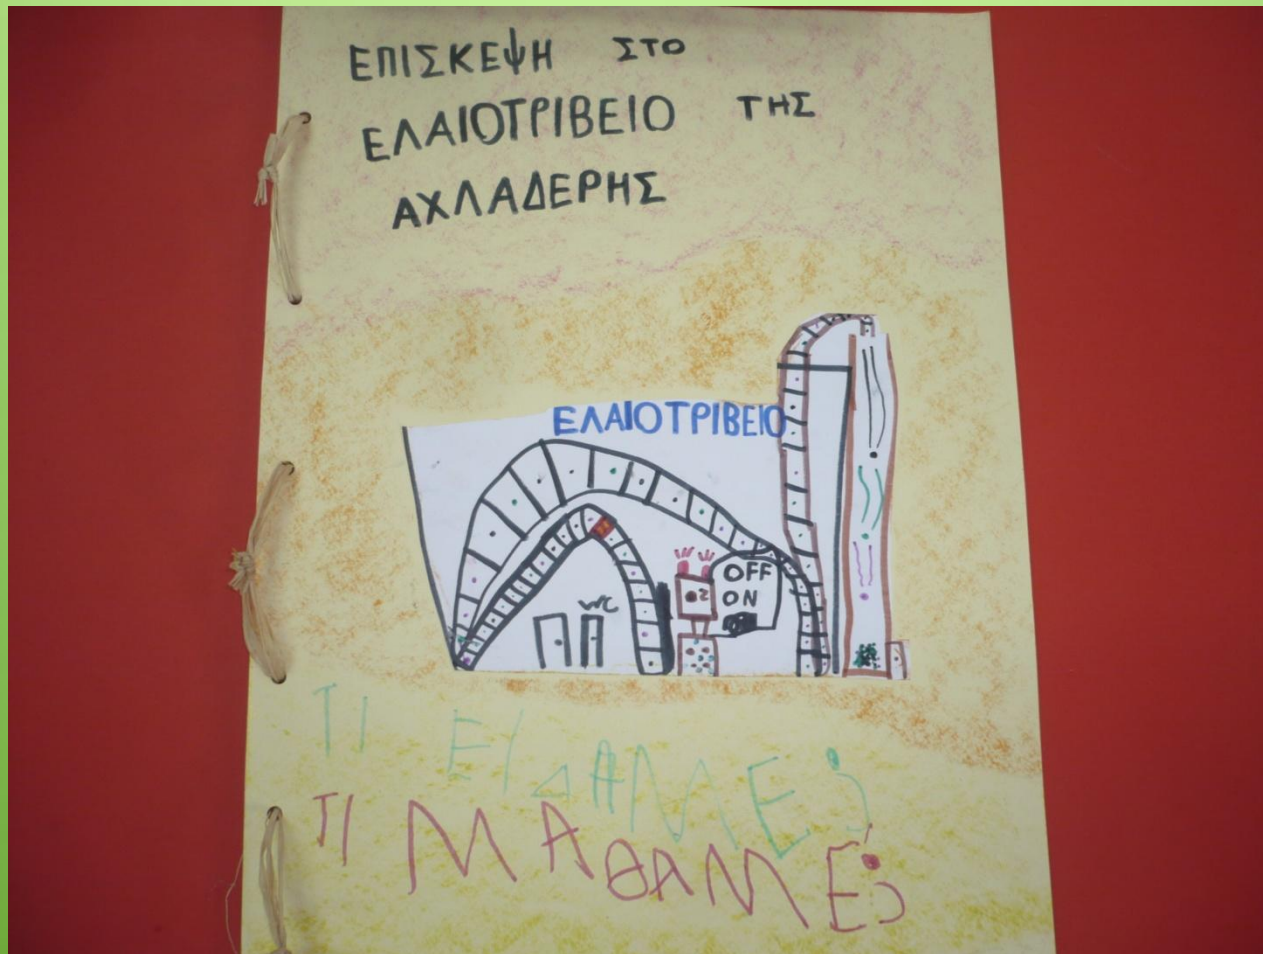 ΕΠΙΣΚΕΨΗ ΣΤΟ
ΕΛΑΙΟΤΡΙΒΕΙΟ ΤΗΣ
ΑΧΛΑΔΕΡΗΣ
ΕΛΑΙΟΤΡΙΒΕΙΟ
OFF
ON
WC
ΤΙ ΕΙΔΑΜΕ;
ΤΙ ΜΑΘΑΜΕ;